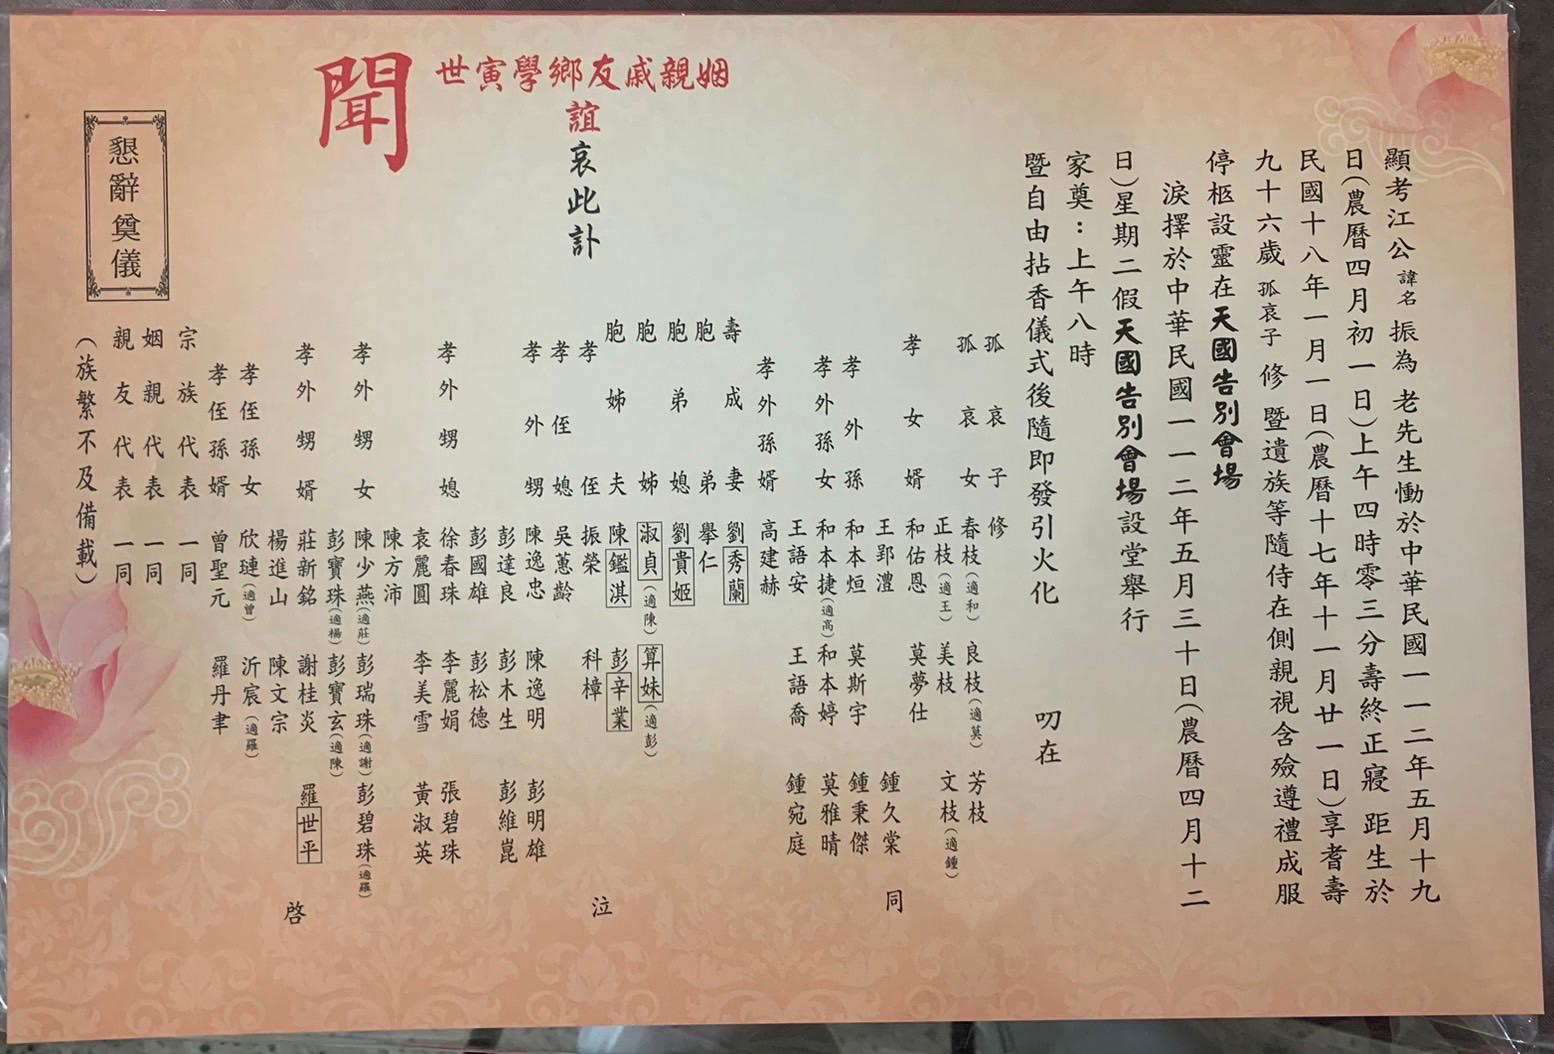 顯考江公諱名振為 老先生慟於中華民國一一二年五月十九
日(農曆四月初一日)上午四時零三分壽終正寢 距生於
民國十八年一月一日(農曆十七年十一月廿一日)享耆壽
九十六歲 孤哀子 修 暨遺族等隨侍在側親視含殮遵禮成服
停柩設靈在天國告別會場
淚擇於中華民國一一二年五月三十日(農曆四月十二
日)星期二假天國告別會場設堂舉行
家奠:上午八時
暨自由拈香儀式後隨即發引火化 叨在
姻親戚友鄉學寅世
誼
哀此訃
聞
孤哀子 修
孤哀女 春枝(適和) 良枝(適莫) 芳枝
正枝(適王) 美枝 文枝(適鍾)
孝女婿 和佑恩 莫夢仕
王郢澧 鍾久棠
孝外孫 和本烜 莫斯宇 鍾秉傑
孝外孫女 和本捷(適高) 和本婷 莫雅晴
王語安 王語喬 鍾宛庭
孝外孫婿 高建赫
壽成妻 劉秀蘭
胞弟 舉仁
胞弟媳 劉貴姬
胞姊 淑貞(適陳) 算妹(適彭)
胞姊夫 陳鑑淇 彭辛業
孝侄 振榮 科樟
孝侄媳 吳蕙齡
孝外甥 陳逸忠 陳逸明 彭明雄
彭達良 彭木生 彭維崑
彭國雄 彭松德
孝外甥媳 徐春珠 李麗娟 張碧珠
袁麗圓 李美雪 黃淑英
陳方沛
孝外甥女 陳少燕(適莊) 彭瑞珠(適謝) 彭碧珠(適羅)
彭寶珠(適楊) 彭寶玄(適陳)
孝外甥婿 莊新銘 謝桂炎 羅世平
楊進山 陳文宗
孝侄孫女 欣璉(適曾) 沂宸(適羅)
孝侄孫婿 曾聖元 羅丹聿
宗族代表 一同
姻親代表 一同
親友代表 一同
(族繁不及備載)
同
泣
啓
懇辭奠儀